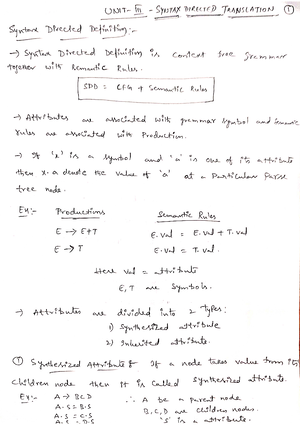 UNIT-III - SYNTAX DIRECTED TRANSLATION ①
Syntax Directed Definition:-
→ Syntax Directed Definition is context free grammar
together with semantic Rules.
SDD = CFG + Semantic Rules
→ Attributes are associated with grammar symbol and semantic
rules are associated with Production.
→ If 'x' is a symbol and 'a' is one of its attribute
then x.a denote the value of 'a' at a Particular Parse
tree node.
Ex:- Productions Semantic Rules
E → E+T E.val = E.val + T.val
E → T E.val = T.val.
Here val = attribute
E, T are symbols.
→ Attributes are divided into 2 types:
1) Synthesized attribute
2) Inherited attribute.
① Synthesized Attribute If a node takes value from its
children node then it is called synthesized attribute.
Ex:- A → BCD ∴ A be a parent node
A.S = B.S B,C,D are children nodes.
A.S = C.S 'S' is a attribute.
A.S = D.S